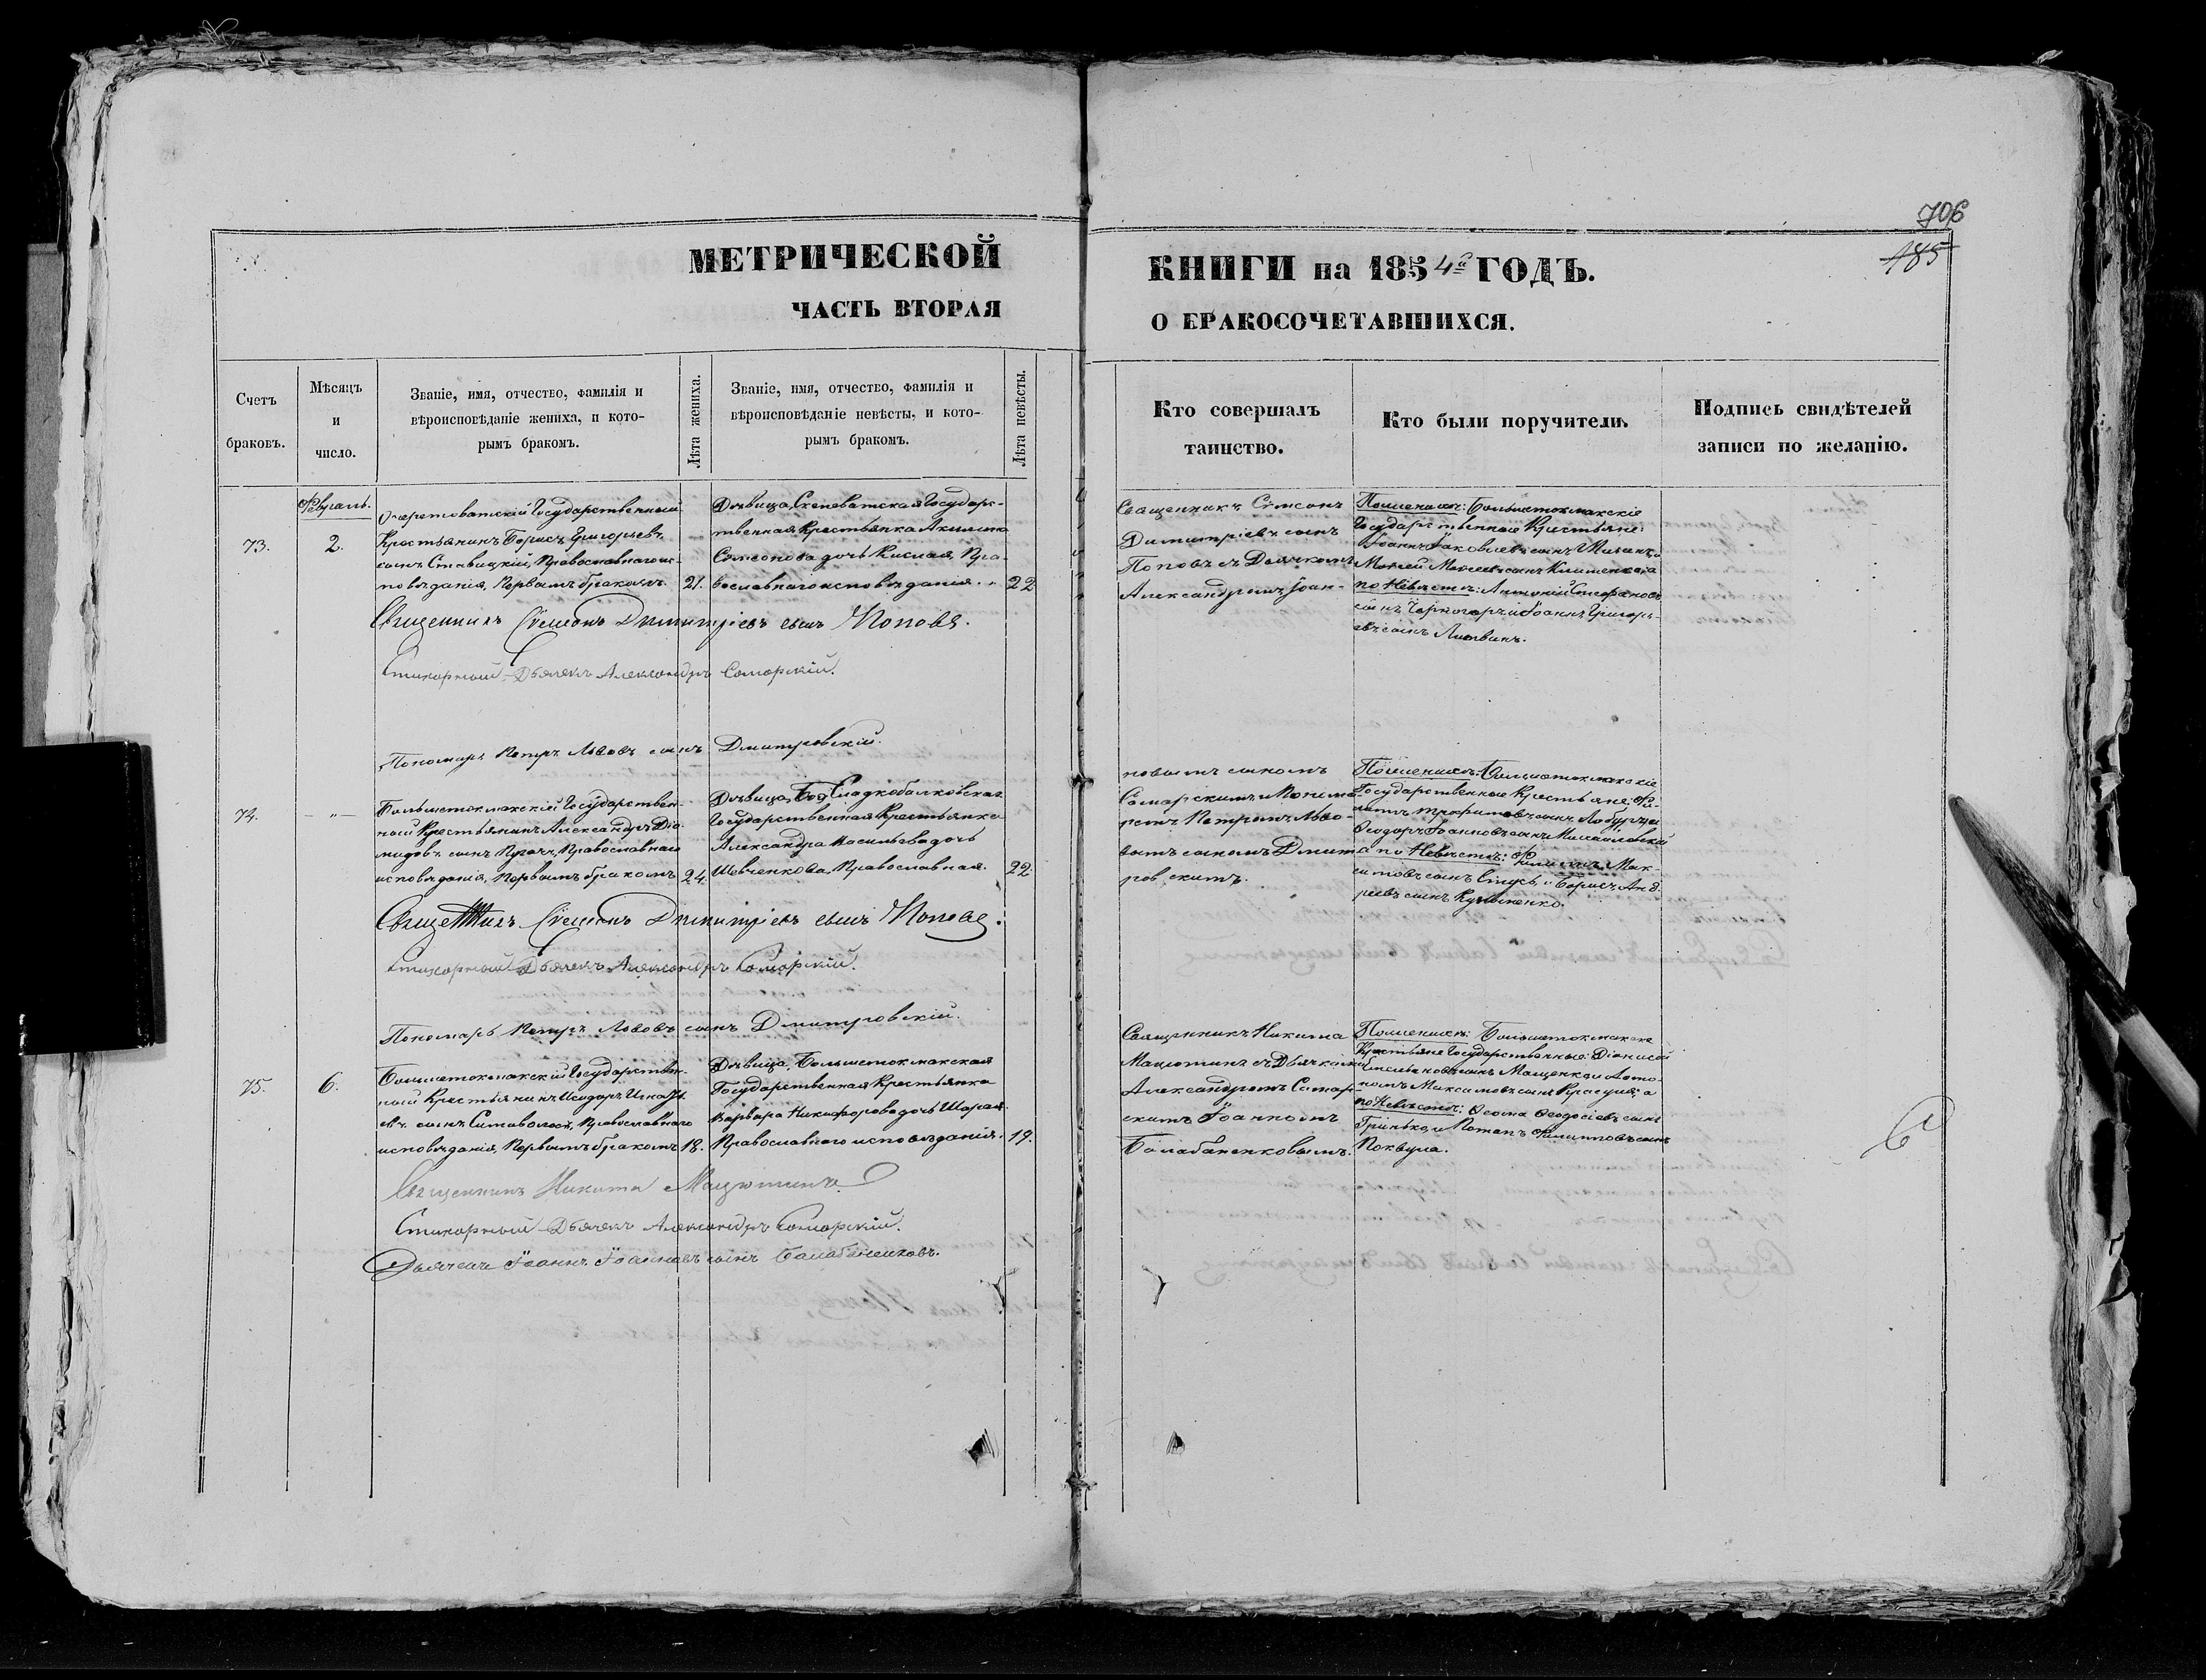 706
185
МЕТРИЧЕСКОЙ
ЧАСТЬ ВТОРАЯ
КНИГИ на 1854й ГОДЪ.
О БРАКОСОЧЕТАВШИХСЯ.
Счетъ
браковъ.
Мѣсяцъ
и
число.
Званіе, имя, отчество, фамилія и
вѣроисповѣданіе жениха, и кото-
рымъ бракомъ.
Лѣта жениха.
Званіе, имя, отчество, фамилія и
вѣроисповѣданіе невѣсты, и кото-
рымъ бракомъ.
Лѣта невѣсты.
Кто совершалъ
таинство.
Кто были поручители.
Подпись свидѣтелей
записи по желанію.
Февраль.
73.
2.
Очеретоватскій Государственный
Крестьянинъ Борисъ Григорьевъ
сынъ Ставицкій, Православнаго ис-
повѣданія, Первымъ бракомъ.
21.
Дѣвица, Скелеватская Государс-
твенная Крестьянка Акилина
Симеонова дочь Кислая, Пра-
вославнаго исповѣданія.
22
Священникъ Симеонъ
Димитріевъ сынъ
Поповъ съ Дьячкомъ
Александромъ Іоан-
По женихѣ: Большетокмакскіе
Государственные Крестьяне:
Іоаннъ Іаковлевъ сынъ
Моѵсей Моѵсеевъ сынъ Клименко, а
по Невѣстѣ: Антоній Стефановъ
сынъ Черногоръ и Іоаннъ Григорь-
евъ сынъ Литвинъ.
Священникъ Сѵмеонъ Димитріевъ сынъ Поповъ.
Стихарный Дьячекъ Александръ Самарскій.
Пономарь Петръ Львовъ сынъ Дмитровскій.
74.
— " —
Большетокмакскій Государствен-
ный Крестьянинъ Александръ Діо-
мидовъ сынъ Пугачъ, Православнаго
исповѣданія, Первымъ бракомъ
24.
Дѣвица, Сладкобалковская
Государственная Крестьянка
Александра Васильева дочь
Шевченкова, Православная.
22
новымъ сыномъ
Самарскимъ и Понома-
ремъ Петромъ Льво-
вымъ сыномъ Дмит-
ровскимъ.
По женихѣ: Большетокмакскіе
Государственные Крестьяне: Фи-
латъ Трофимовъ сынъ и
Ѳеодоръ Іоанновъ сынъ Михайловскій
а по Невѣстѣ: Филиппъ Мак-
симовъ сынъ и Борисъ Анд-
реевъ сынъ
Священникъ Сѵмеонъ Димитріевъ сынъ Поповъ.
Стихарный Дьячекъ Александръ Самарскій.
Пономарь Петръ Львовъ сынъ Дмитровскій.
75.
6.
Большетокмакскій Государствен-
ный Крестьянинъ Исидоръ Игнать-
евъ сынъ Ситаволосъ, Православнаго
исповѣданія, Первымъ бракомъ
18.
Дѣвица, Большетокмакская
Государственная Крестьянка
Варвара Никифорова дочь Шарая.
Православнаго исповѣданія.
19.
Священникъ Никита
Мацютинъ съ Дьячками
Александромъ Самар-
скимъ Іоанномъ
Балабаненковымъ.
По женихѣ: Большетокмакскіе
Крестьяне Государственные: Діонисій
сынъ Маценко и Анто-
номъ Максимовъ сынъ а
по Невѣстѣ: Ѳеодосіевъ сынъ
Гринько, и Потапъ Филипповъ сынъ
Священникъ Никита Мацютинъ
Стихарный Дьячекъ Александръ Самарскій.
Дьячекъ Іоаннъ Іоанновъ сынъ Балабаненковъ.